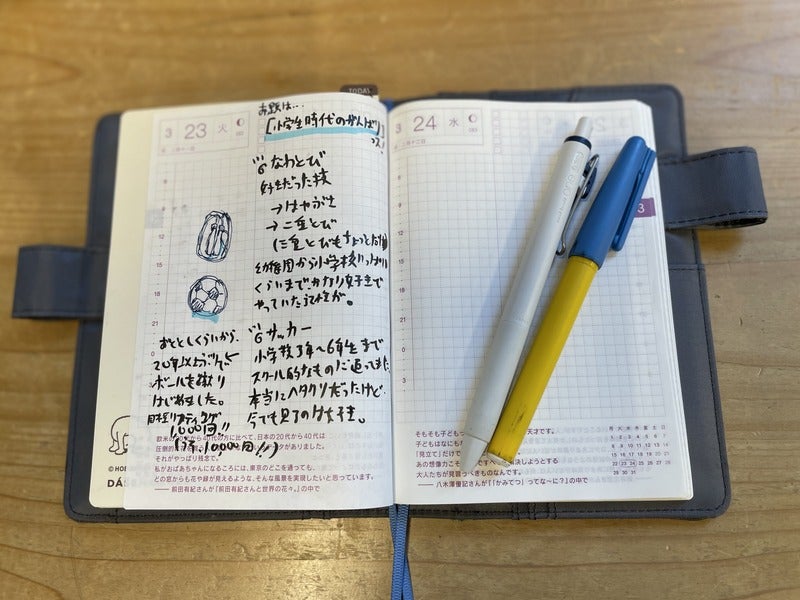 TODAY
3 23 火
お題は…
[小学生時代のがんばり]
なわとび
好きだった技
→はやぶさ
→二重とび
(三重とびもちょっと
幼稚園から小学校いっぱい
くらいまでかなり好きで
やっていた
サッカー
小学校3年〜6年生まで
スクール的なものに通ってました
本当にヘタクソだったけど
今でも見るのは好き。
おととしくらいから、
20年以上ぶりに
ボールを蹴り
はじめました。
目標リフティング
1000回!!
10,000回!!)
7
8
9
12
15
18
21
0
3
圧倒的
それがやっぱり残念で。
私がおばあちゃんになるころには、東京のどこを通っても、
どの窓からも花や緑が見えるような、そんな風景を実現したいと思っています。
——前田有紀さんが『前田有紀さんと世界の花々。』の中で
3 24 水
3
そもそも子ども
天才です。
子どもはなにも
「見立て」だけで
あの想像力こそ
解決しようとする
大人たちが見習うべきものなんです。
——八木澤優記さんが『「かみてつ」ってな〜に?』の中で
月 火 水 木 金 土 日
1 2 3 4 5 6 7
8 9 10 11 12 13 14
15 16 17 18 19 20 21
22 23 24 25 26 27 28
29 30 31